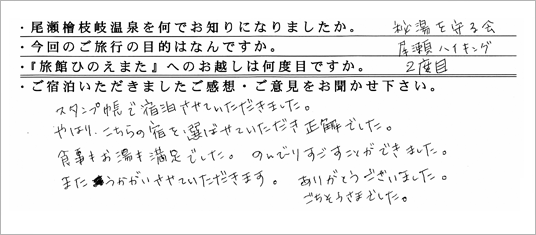 ・尾瀬檜枝岐温泉を何でお知りになりましたか。 秘湯を守る会
・今回のご旅行の目的はなんですか。 尾瀬ハイキング
・『旅館ひのえまた』へのお越しは何度目ですか。 2度目
・ご宿泊いただきましたご感想・ご意見をお聞かせ下さい。
スタンプ帳で宿泊させていただきました。
やはり、こちらの宿を選ばせていただき正解でした。
食事もお湯も満足でした。 のんびりすごすことができました。
またうかがいさせていただきます。 ありがとうございました。
ごちそうさまでした。